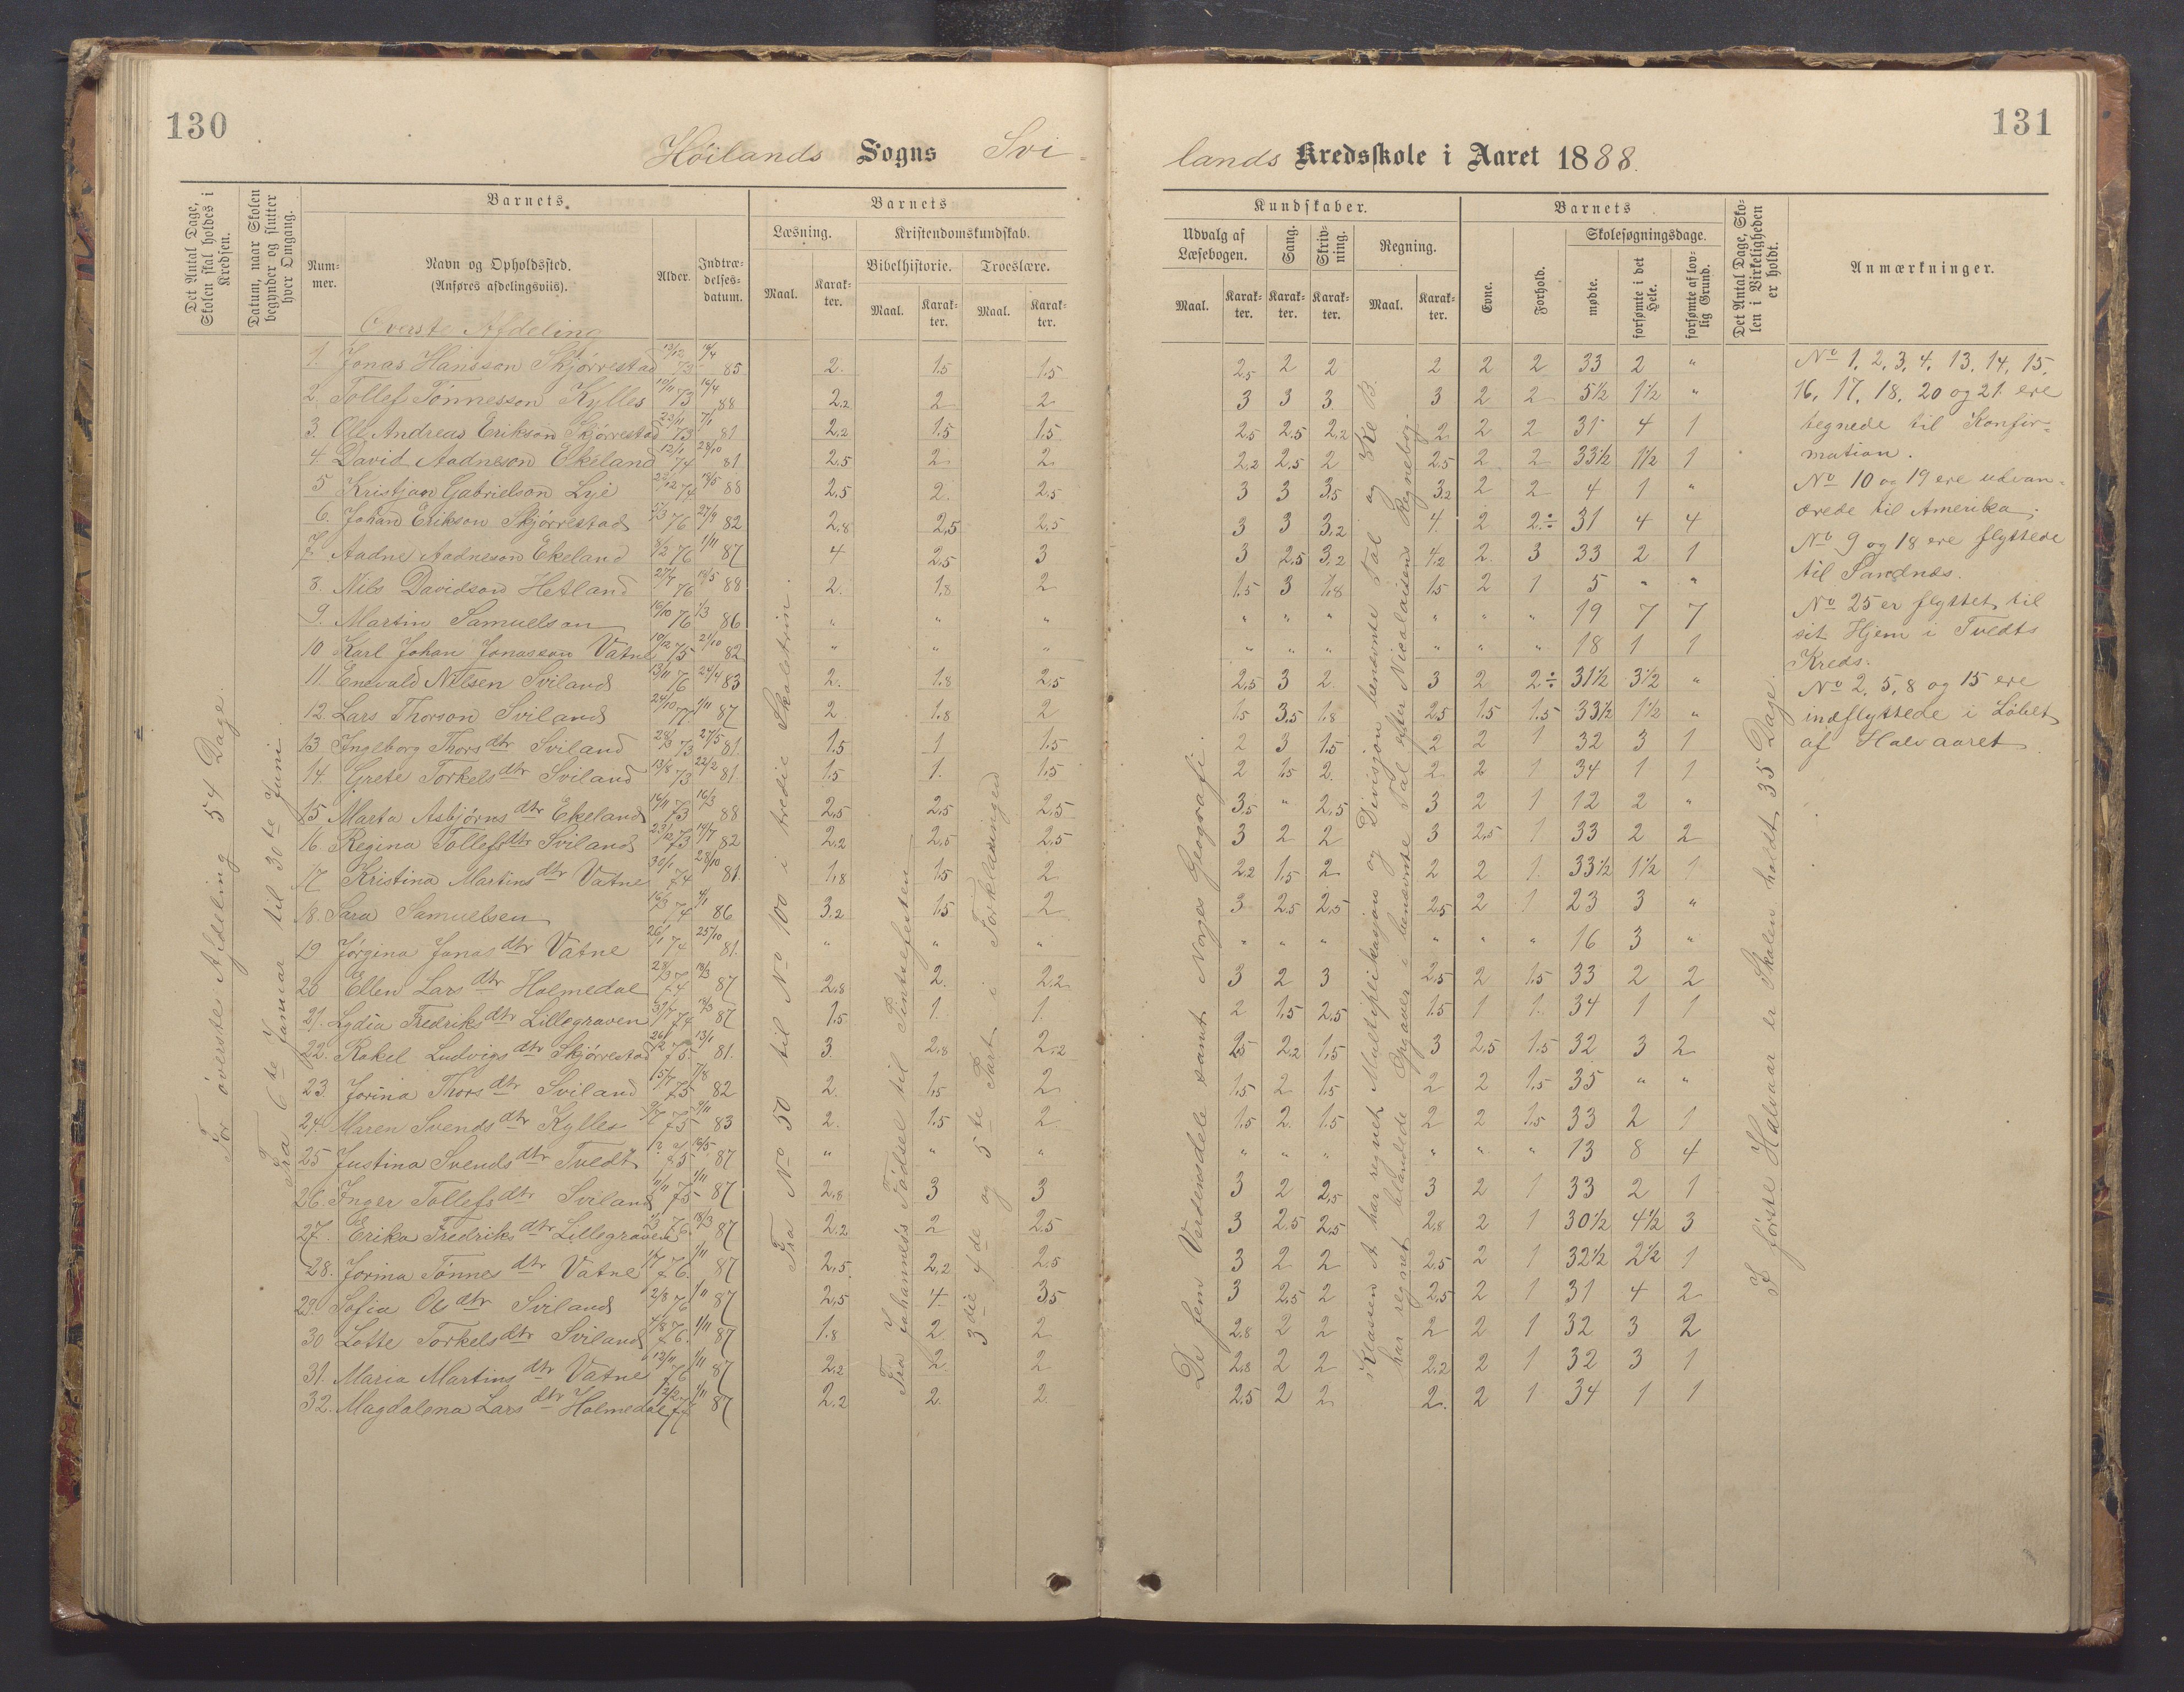 130
Höilands Sogns Svi-
Det Antal Dage, Skolen skal holdes i Kredsen.
Datum, naar Skolen begynder og slutter hver Omgang.
Barnets
Barnets
Læsning. Kristendomskundskab.
Bibelhistorie. Troeslære.
Num-mer. Navn og Opholdssted. (Anføres afdelingsviis). Alder. Indtræ-delses-datum. Maal. Karak-ter. Maal. Karak-ter. Maal. Karak-ter.
Överste Afdeling
1. Jonas Hansson Skjørrestad 13/12 73 16/4 85 2. 1.5 1.5
2. Tollef Tønnesson Kylles 10/11 73 16/4 88 2.2 2 2
3. Ole Andreas Erikson Skjørrestad 23/11 73 7/1 81 2.2 1.5 1.5
4. David Aadneson Ekeland 12/1 74 28/10 81 2.5 2. 2.
5 Kristjan Gabrielson Lye 74 14/5 88 2.5 2. 2.5
6. Johan Erikson Skjørrestad 76 27/9 82 2.8 2.5 2.5
7. Aadne Aadneson Ekeland 8/2 76 1/11 87 4 2.5 3
8. Nils Davidson Hetland 27/7 76 14/5 88 2. 1.8 2
9. Martin Samuelson 16/10 76 1/3 86 " " "
10 Karl Johan Jonasson Vatne 10/12 75 21/10 82 " " "
11. Enevald Nilsen Sviland 13/11 76 24/4 83 2. 1.8 2.5
12. Lars Thorson Sviland 24/10 77 1/11 87 2 1.8 2
13 Ingeborg Thorsdtr Sviland 28/3 73 27/5 81. 1.5 1 1.5
14. Grete Torkelsdtr Sviland 13/8 73 22/2 81. 1.5 1. 1.5
15 Marta Asbjørnsdtr Ekeland 16/11 73 16/3 88 2.5 2.5 2.5
16. Regina Tollefsdtr Sviland 23/12 73 14/7 82 2.2 2.5 2.5
17 Kristina Martinsdtr Vatne 30/1 74 28/10 81. 1.8 1.5 2
18. Sara Samuelsen 16/3 74 4/1 86 3.2 1.5 2
19 Jørgina Jonasdtr Vatne 26/1 74 25/10 81. " " "
20 Ellen Larsdtr Holmedal 28/3 74 18/3 87 2.8 2. 2.2
21. Lydia Fredriksdtr Lillegraven 74 18/3 87 1.5 1. 1.
22. Rakel Ludvigsdtr Skjørrestad 75. 13/1 81. 3. 2.8 2.2
23. Jorina Thorsdtr Sviland 15/7 75 7/8 82 2. 1.5 2
24. Maren Svendsdtr Kylles 75 9/11 83 2. 1.5 2.
25 Justina Svendsdtr Tvedt 75 16/5 87 " " "
26. Inger Tollefsdtr Sviland 11/11 75 1/11 87 2.8 3 3
27. Erika Fredriksdtr Lillegraven 76. 18/3 87 2.2 2 2.5
28. Jorina Tønnesdtr Vatne 76. 1/11 87 2.5 2.2 2.5
29. Sofia Oledtr Sviland 2/8 76 1/11 87 2.5 4. 3.5
30 Lotte Torkelsdtr Sviland 7/8 76. 1/11 87 1.8 2 2
31. Maria Martinsdtr Vatne 12/11 76 1/11 87 2.2 2. 2
32. Magdalena Larsdtr Holmedal 12/2 77 1/11 87 2.2 2. 2.
For överste Afdeling 54 Dage.
Fra 6te Januar til 30te Juni.
Fra No 50 til No 100 i tredie Skoletrin.
Fra Johannes's Fødsel til Pintsefesten
3die 4de og 5te Part i Forklaringen
131
lands Kredsskole i Aaret 1888.
Kundskaber.
Barnets
Det Antal Dage, Sko-len i Virkeligheden er holdt.
Anmærkninger.
Udvalg af Læsebogen. Sang. Skriv-ning. Regning. Evne. Forhold. Skolesøgningsdage.
Maal. Karak-ter. Karak-ter. Karak-ter. Maal. Karak-ter. mødte. forsømte i det Hele. forsømte af lov-lig Grund.
2.5 2 2 2 2 2 33 2 "
3 3 3 3 2 2 5½ 1½ "
2.5 2.5 2.2 2 2 2 31 4 1
2.2 2.5 2 2.5 2 2 33½ 1½ 1
3 3 3.5 3.2 2 2 4 1 "
3 3 3.2 4. 2 2÷ 31 4 4
3 2.5 3.2 4.2 2. 3 33 2 1
1.5 3 1.8 1.5 2 1 5 " "
" " " " " " 19 7 7
" " " " " " 18 1 1
2.5 3 2. 3 2 2÷ 31½ 3½ "
1.5 3.5 1.8 2.5 1.5 1.5 33½ 1½ "
2 3 1.5 2 2 1 32 3 1
2 1.5 2. 2 2 1 34 1 1
3.5 " 2.5 3 2 1 12 2 "
3 2 2 3 2.5 1 33 2 2
2.2 1.5 2 2 2 1. 33½ 1½ 1
3 2.5 2.5 2.5 2 1 23 3 "
" " " " " " 16 3 "
3 2 3 2.5 2 1.5 33 2 2
2 1.5 2.5 1.5 1 1. 34 1 1
2.5 2.2 1.5 3 2.5 1.5 32 3 2
1.5 2 1.5 2 2 1.5 35 " "
1.5 2. 1.5 2 2 1.5 33 2 1
" " " " " " 13 8 4
3 2 2.5 3 2 1 33 2 1
3 2.5 2.5 2.8 2 1 30½ 4½ 3
3 2 2 2.5 2 1 32½ 2½ 1
3 2.5 2 2.5 2 1 31 4 2
2.8 2 2 2 2 1 32 3 2
2.8 2 2 2.2 2 1 32 3 1
2.5 2 2 2. 2 1 34 1 1
De fem Verdensdele samt Norges Geografi.
i Klassen A har regnet Multiplikasjon og Divisjon benævnte Tal og Kl B.
har regnet blandede Opgaver i benævnte Tal efter Nicolaisens Regnebog.
I første Halvaar er Skolen holdt 35 Dage.
No 1, 2, 3, 4, 13, 14, 15,
16, 17, 18, 20 og 21 ere
tegnede til Konfir=
mation.
No 10 og 19 ere udvan=
drede til Amerika;
No 9 og 18 ere flyttede
til Sandnes.
No 25 er flyttet til
sit Hjem i Tvedts
Kreds.
No 2, 5, 8 og 15 ere
indflyttede i Løbet
af Halvaaret